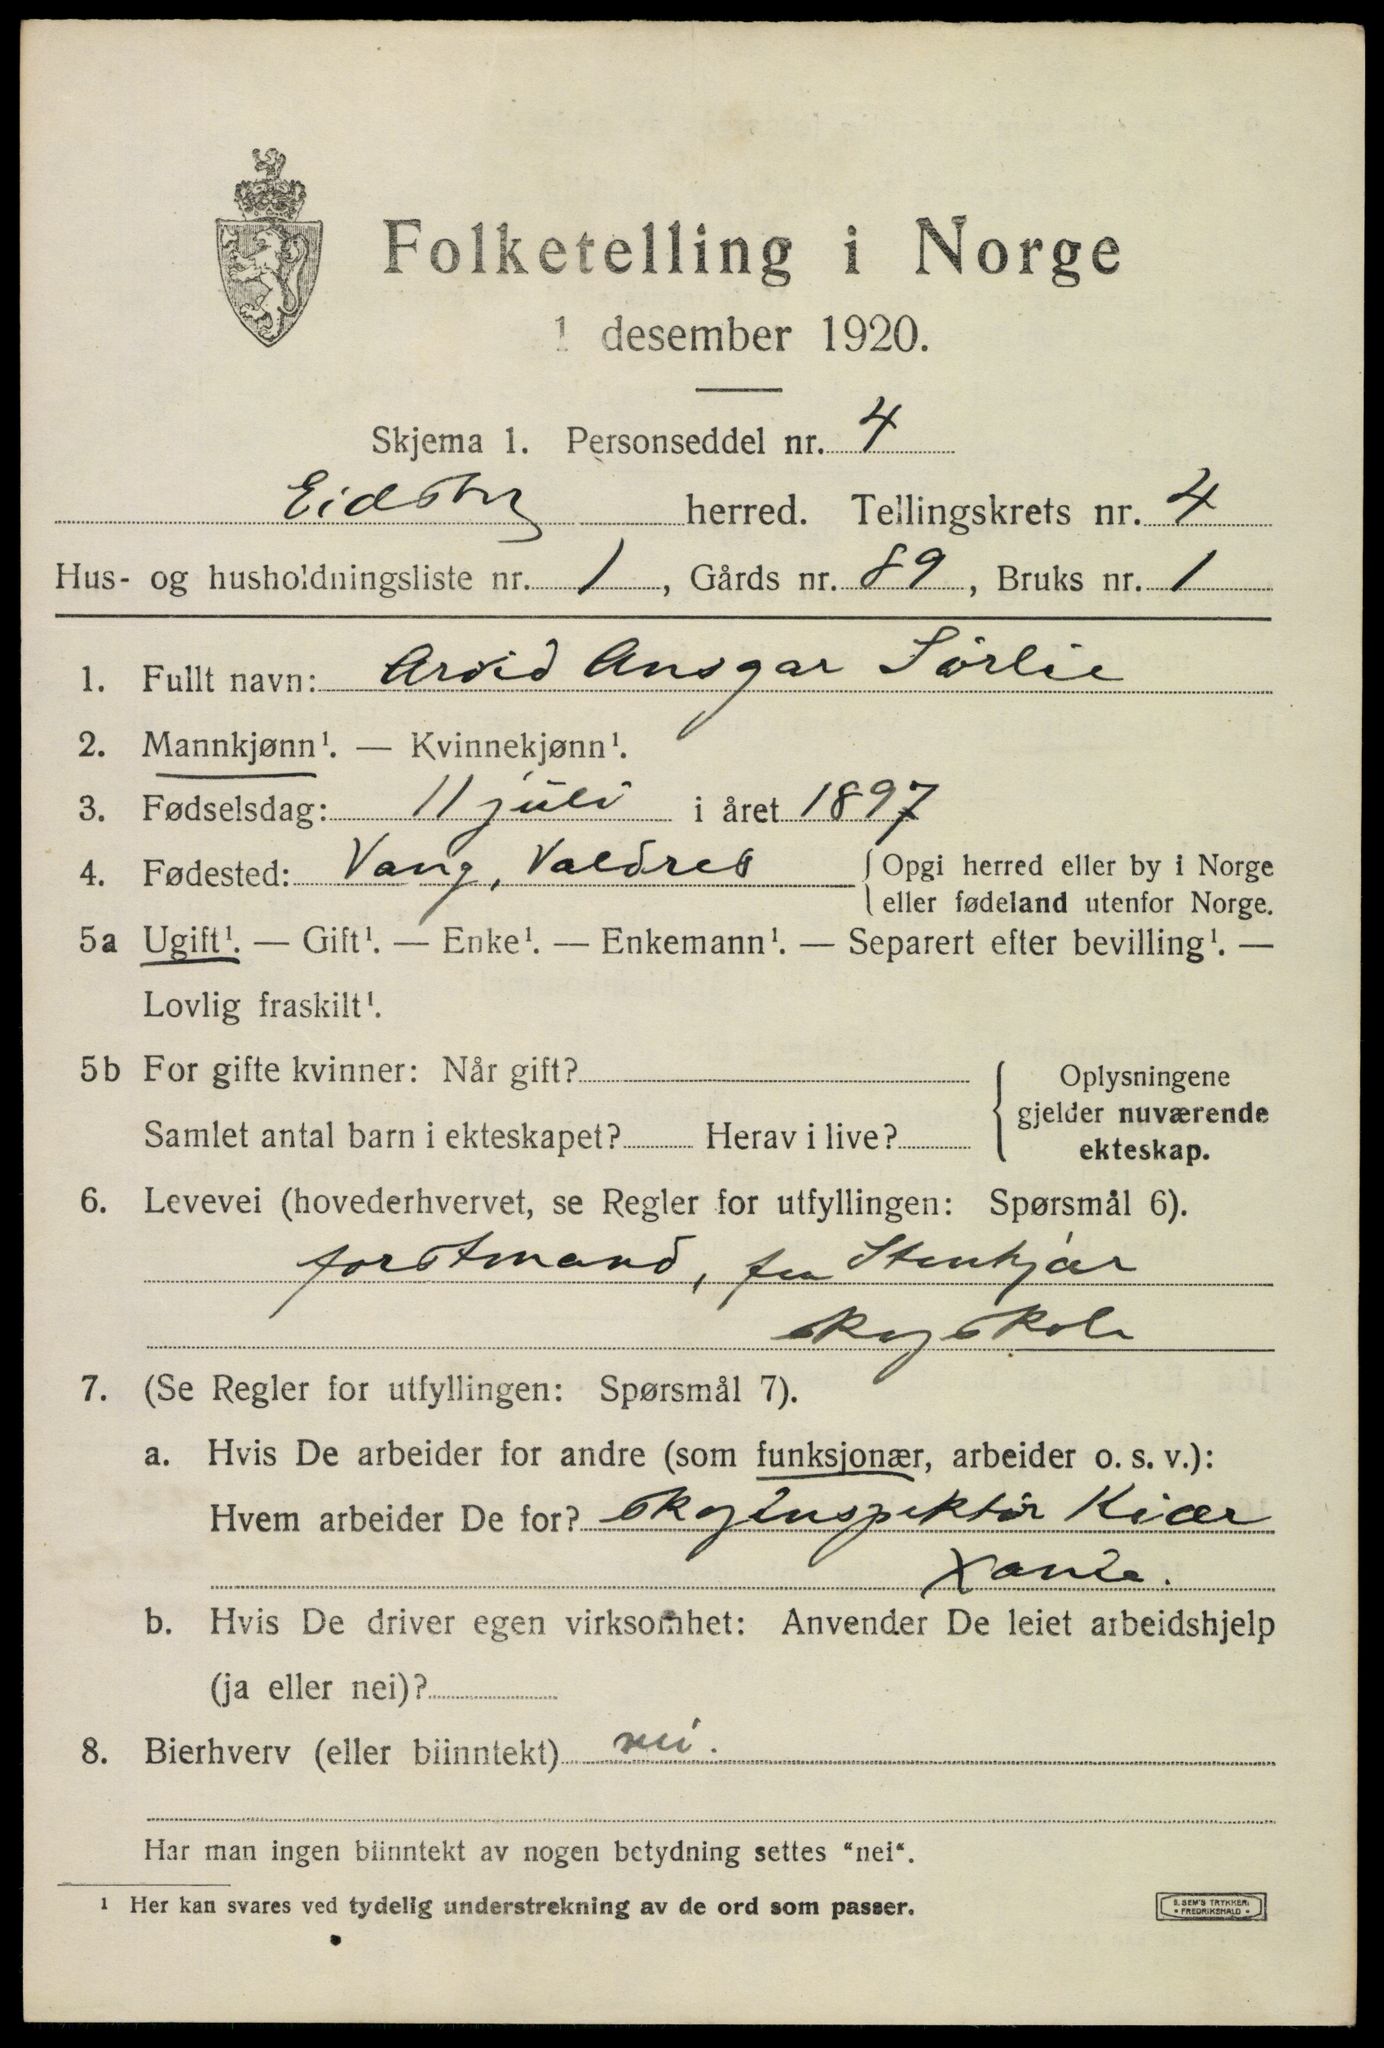 Folketelling i Norge
1 desember 1920.
Skjema 1. Personseddel nr. 4
Eidsberg herred. Tellingskrets nr. 4
Hus- og husholdningsliste nr. 1, Gårds nr. 89, Bruks nr. 1
1. Fullt navn: Arvid Ansgar Sørlie
2. Mannkjønn¹. — Kvinnekjønn¹.
3. Fødselsdag: 11 juli i året 1897
4. Fødested: Vang, Valdres { Opgi herred eller by i Norge
eller fødeland utenfor Norge.
5a Ugift¹. — Gift¹. — Enke¹. — Enkemann¹. — Separert efter bevilling¹. —
Lovlig fraskilt¹.
5b For gifte kvinner: Når gift?
Samlet antal barn i ekteskapet? Herav i live?
{ Oplysningene
gjelder nuværende
ekteskap.
6. Levevei (hovederhvervet, se Regler for utfyllingen: Spørsmål 6).
forstmand, fra Stenkjær
skogskole
7. (Se Regler for utfyllingen: Spørsmål 7).
a. Hvis De arbeider for andre (som funksjonær, arbeider o. s. v.):
Hvem arbeider De for? skoginspektør Kiær
b. Hvis De driver egen virksomhet: Anvender De leiet arbeidshjelp
(ja eller nei)?
8. Bierhverv (eller biinntekt) nei.
Har man ingen biinntekt av nogen betydning settes “nei“.
1 Her kan svares ved tydelig understrekning av de ord som passer.
E. SEM'S TRYKKERI
• FREDRIKSHALD •